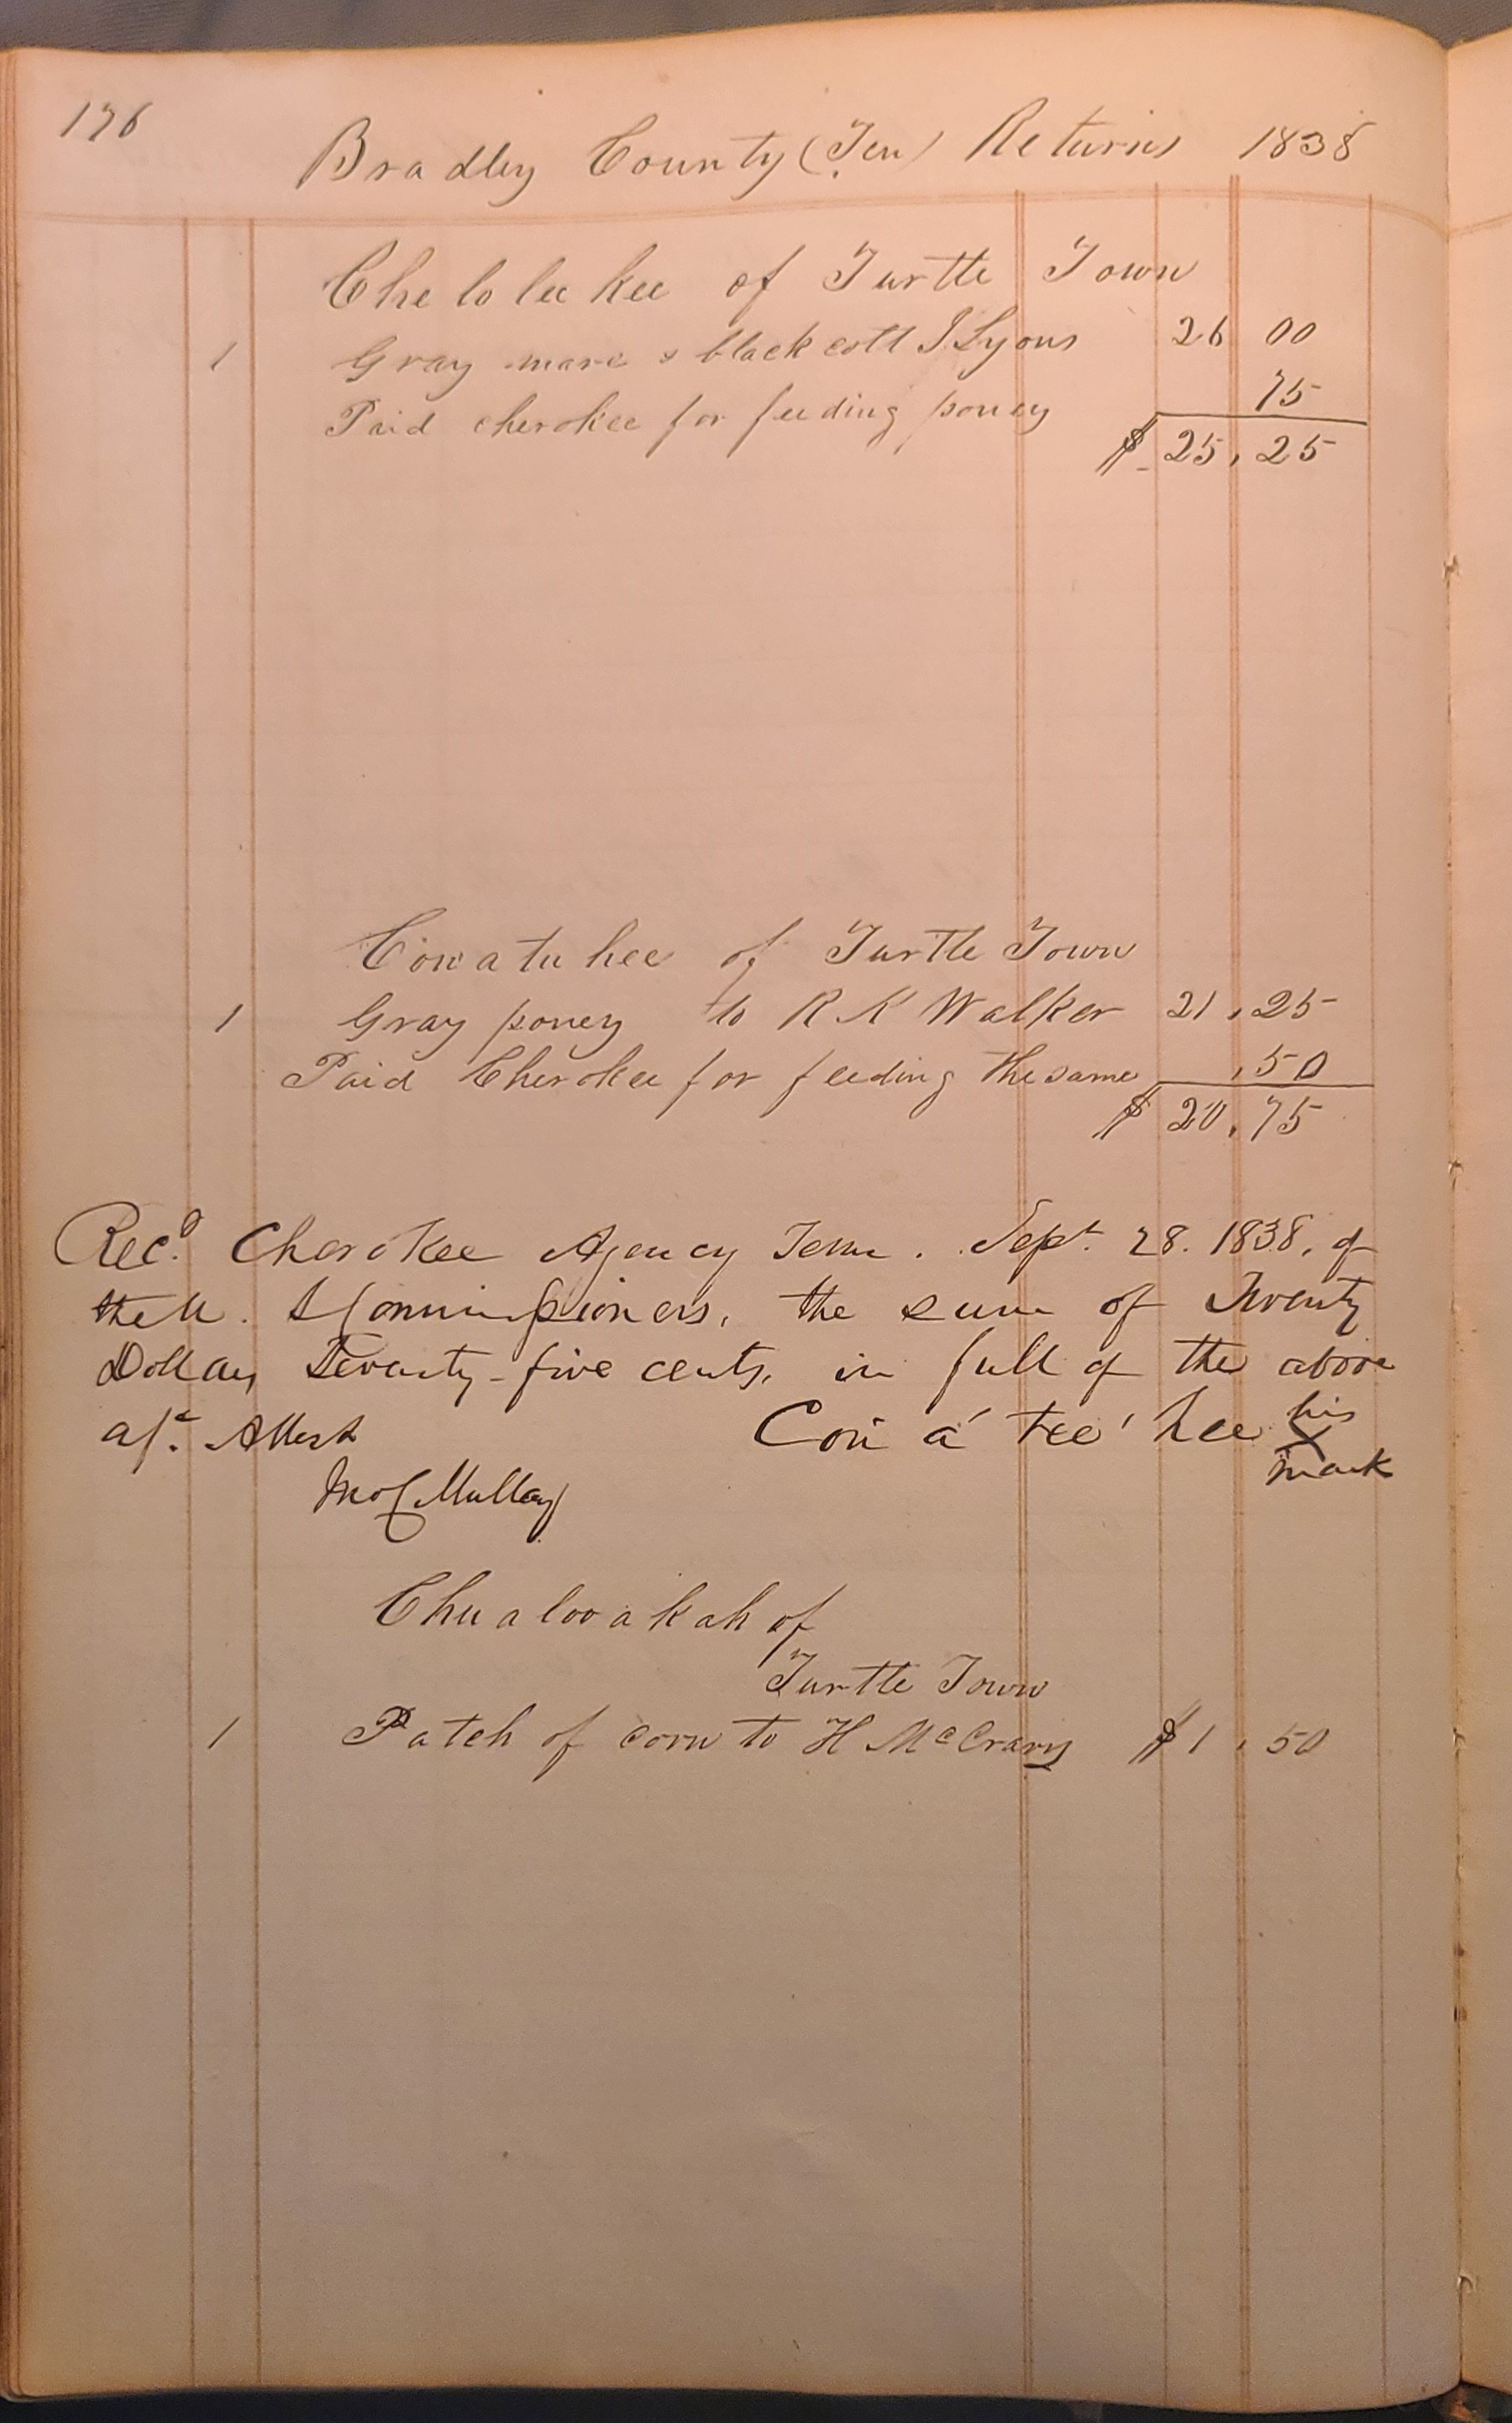 176
Bradley County (Ten) Returns 1838
Che lo lee kee of Turtle Town
1 Gray mare & black colt J Lyons 26 00
Paid cherokee for feeding poney 75
$ 25,25
Cow a tu hee of Turtle Town
1 Gray poney to R K Walker 21,25
Paid Cherokee for feeding the same ,50
$ 20,75
Recd. Cherokee Agency Tenn. Sept. 28. 1838, of
the U. S Commissioners, the sum of Twenty
Dollars Seventy-five cents, in full of the above
a/c. Attest Con a' tee' hee his X mark
Jno C Mullay
Chu a loo a kah of
Turtle Town
1 Patch of corn to H McCrary $ 1,50